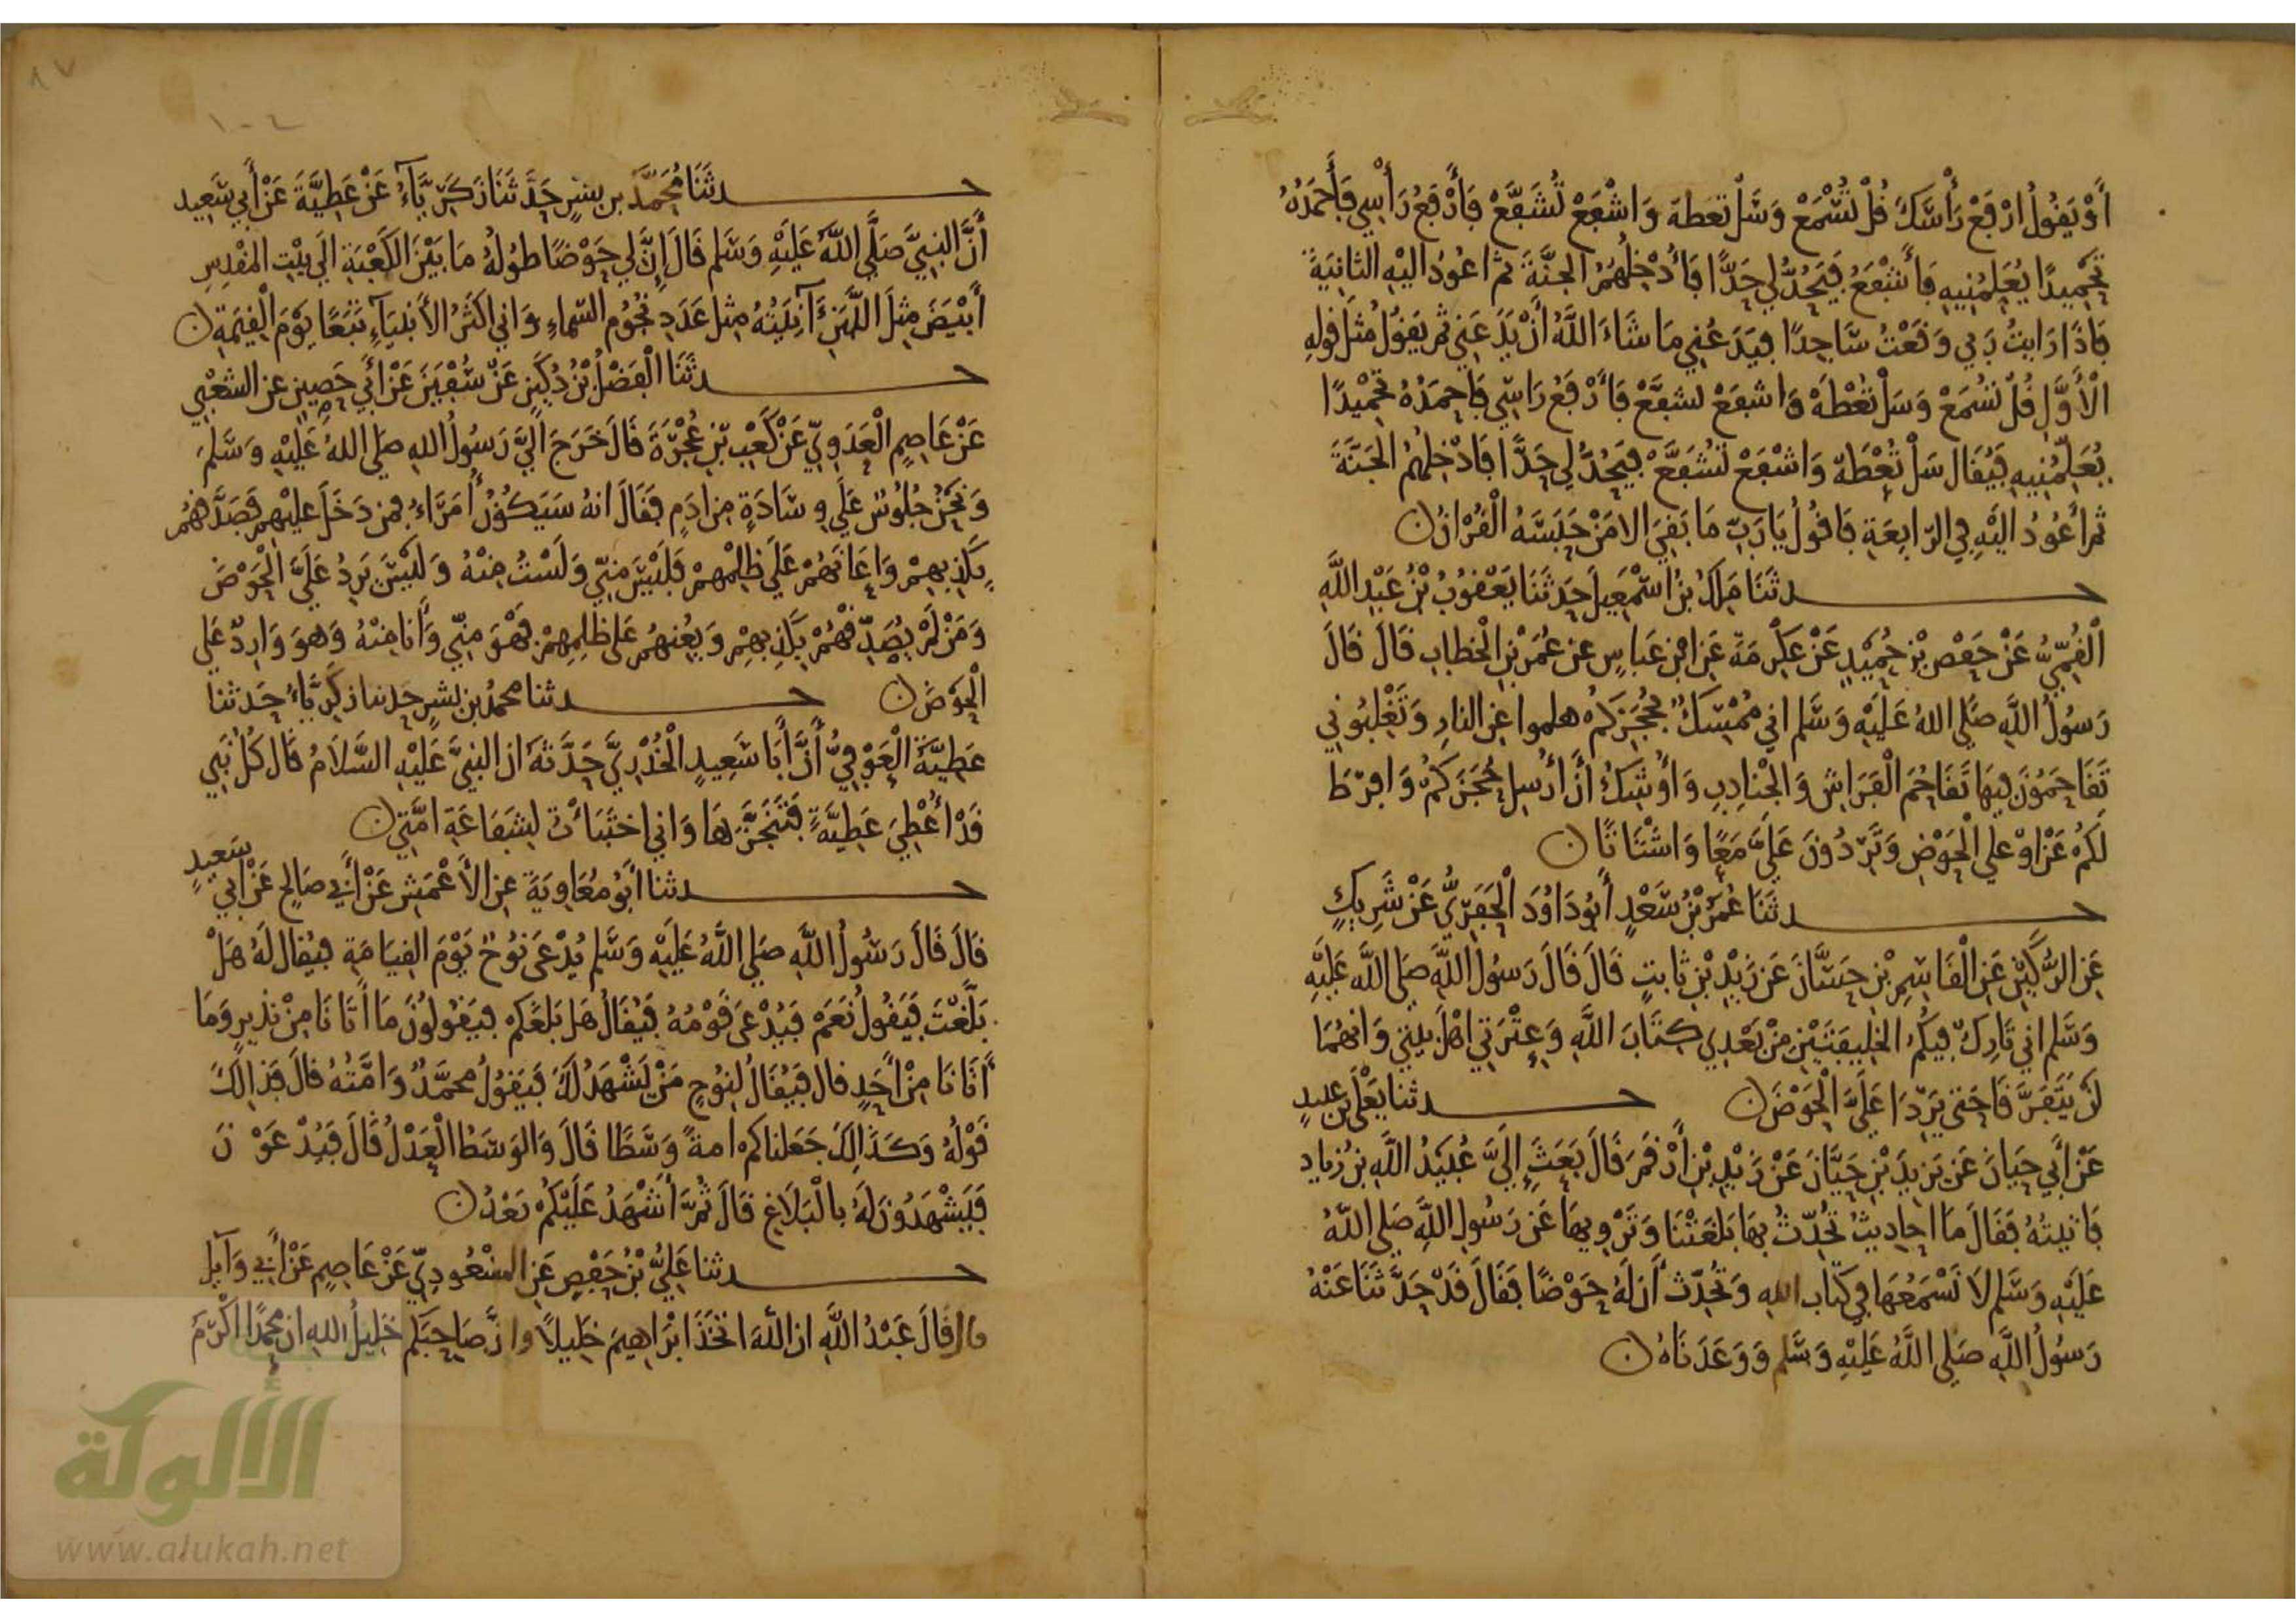 أَوْ يَقُولُ ارْفَعْ رَأْسَكَ قُلْ تُسْمَعْ وَسَلْ تعطه وَاشْفَعْ تُشَفَّعْ فَأَرْفَعُ رَأْسِي فَأَحْمَدُهُ
تَحْمِيدًا يُعَلِّمُنِيهِ فَأَشْفَعُ فَيَحُدُّ لِي حَدًّا فَأُدْخِلُهُمُ الجنَّةَ ثم اعُودُ اليْهِ الثانِيَةَ
فَاذَا رَايتُ رَبي وَقَعْتُ سَاجِدًا فيَدَعُنِي مَا شَاءَ اللَّهُ أَنْ يَدَعَنِي ثم يَقُولُ مثْلَ قولِهِ
الْأَوَّلِ قُلْ تسْمَعْ وَسَلْ تُعْطَهْ وَاشفعْ تشفَّعْ فَأَرْفَعُ رَاسِي فَاحمَدُهُ تَحْمِيْدًا
يُعَلِّمُنِيهِ فَيُقَال سَلْ تُعْطَهْ وَاشْفَعْ تُشَفَّعْ فيَحُدُّ لِي حَدًّا فَادْخِلهُمُ الجَنَّةَ
ثم أعُودُ اليْهِ فِي الرَّابِعَةِ فَاقُولُ يَا رَبِّ مَا بَقِيَ الا مَنْ حَبَسَهُ الْقُرْانُ ن
حدثَنَا مَالِكُ بنُ اسْمَعِيلَ حَدثَنَا يَعْقُوبُ بْنُ عَبْدِ اللَّهِ
الْقُمِّيُّ عَنْ حَفْصِ بْنِ حُمَيْدٍ عَنْ عِكْرِمَةَ عَنِ ابْنِ عَباسٍ عن عُمَرَ بْنِ الْخطابِ قَالَ قَالَ
رَسُولُ اللَّهِ صَلي اللهُ عَلَيْهِ وَسَّلم اني مُمْسِكٌ بحُجَزكُمْ هلموا عنِ النارِ وَتَغْلِبُونِي
تَقَاحَمُونَ فِيهَا تَقَاحُمَ الْفَرَاشِ وَالجْنادِبِ وَأُوشِكُ أَنْ أُرْسِلَ بحُجَزَكُمْ وَافرِطَ
لَكُمْ عَنْ اوْ علي الْحَوْضِ وَتَرِدُونَ عَلَيَّ مَعًا وَاشْتَاتًا ن
حدثَنَا عُمَرُ بْنُ سَعْدٍ أَبُو دَاوُدَ الْحَفَرِيُّ عَنْ شَرِيكٍ
عَنِ الرُّكَيْنِ عَنِ الْقَاسِمِ بْنِ حَسَّانَ عَن زَيْدِ بْنِ ثَابتٍ قَالَ قَالَ رَسُولُ اللَّهِ صَلي اللَّه عَلَيْهِ
وَسَّلم اني تَارِكٌ فِيكُمُ الخليفَتَيْنِ مِنْ بَعْدِي كِتَابَ اللَّهِ وَعِتْرَتِي اهْلَ بيتي وَانهُمَا
لنْ يَتَفَرَّقَا حَتى يَرِدَا عَلَيَّ الْحَوْضَ ن حدثنا يَعْلَى بن عبيدٍ
عَنْ أَبِي حَيانَ عَن يَزِيدَ بْنِ حَيَّانَ عَنْ زَيْدِ بْنِ أَرْقمَ قَالَ بَعَثَ إِلَيَّ عُبَيْدُ اللَّهِ بنُ زياد
فَاتيتُهُ فقَالَ مَا احادِيثُ تُحَدِّثُ بِهَا بَلغَتْنَا وَتَرْوِيهَا عَن رَسُولِ اللَّهِ صَلي اللَّهُ
عَلَيْهِ وَسَّلم لَا نَسْمَعُهَا فِي كتابِ اللهِ وَتُحَدِّث أَن لَهُ حَوْضًا فَقَالَ قَدْ حَدَّثَنَا عَنْهُ
رَسُولُ اللَّهِ صَلي اللَّهُ عَلَيْهِ وَسَّلم وَوَعَدَنَاهُ ن
٨٧
١٠٤
حدثَنَا مُحَمَّدُ بن بشرٍ حَدَّثَنَا زَكَرِيَّاءُ عَنْ عَطِيَّةَ عَنْ أَبِي سَعِيد
أَنَّ النبِيَّ صَلَّى اللَّهُ عَلَيْهِ وَسَّلم قَالَ إِنَّ لِي حَوْضًا طولُهُ مَا بَيْنَ الكَعْبَةِ الَي بيْتِ المقْدِسِ
أَبْيَضَ مِثلَ اللَّبَنِ آنِيَتُهُ مِثل عَدَدِ نجُومِ السَّماءِ وَاني اكثَرُ الأَنبيَآءِ تَبَعًا يوْمَ الْقِيَمَةِ ن
حدثَنَا الْفَضْلُ بْنُ دُكَيْنٍ عَنْ سُفْيَنَ عَنْ أَبِي حَصِينٍ عن الشعْبِي
عَنْ عَاصِمٍ الْعَدَوِيِّ عَنْ كَعْبِ بْنِ عُجْرَةَ قَالَ خَرَجَ الَيَّ رَسُولُ اللهِ صَلي اللهُ عَلَيْهِ وَسَّلَمَ
وَنَحْنُ جُلُوسٌ عَلَي وِسَادَةٍ مِن ادَمٍ فقَالَ انهُ سَيَكُوْنُ أُمَرَاءُ فمن دَخَلَ عليْهِم فصَدَّقهُم
بكَذِبهِمْ وَاعَانَهُمْ عَلَي ظلِمْهِمْ فَلَيْسَ مِنِّي وَلَسْتُ مِنْهُ وَلَيْسَ يَرِدُ عَلَيَّ الْحَوْضَ
وَمَنْ لَمْ يُصَدِّقْهُمْ بكَذِبهِمْ وَيُعِنهُم عَلَى ظلْمِهِمْ فهْوَ مِنِّي وَأَنَا مِنْهُ وَهْوَ وَارِدٌ عَلي
الْحَوْضَ ن حدثنا محمدُ بن بشرٍ حدثنا زكرِيَّاءُ حَدثنا
عَطِيَّةُ الْعَوْفِيُّ أَنَّ أَبَا سَعِيدٍ الْخُدْرِيَّ حَدَّثَهُ ان النبيَّ عَلَيْهِ السَّلَامُ قَال كُلُّ نَبِي
قَدْ أُعْطِيَ عَطِيَّةً فَتَنَجَّزَهَا وَاني اختَبَأْتُ لِشَفَاعَةِ امَّتِي ن
حدثنا ابُو مُعَاوِيَةَ عنِ الأَعْمَشِ عَنْ أَبِي صَالحٍ عَنْ ابِي سَعِيدٍ
قَالَ قَالَ رَسُولُ اللَّهِ صَلي اللَّهُ عَلَيْهِ وَسَّلم يُدْعَى نوُحٌ يَوْمَ القِيَامَةِ فيُقَال لَهُ هَلْ
بَلَّغْتَ فَيَقُولُ نَعَمْ فَيُدْعَى قَوْمُهُ فَيُقَالُ هَل بَلغَكم فيَقُولُونَ مَا أَتَانَا مِنْ نذيرٍ وَمَا
أَتَانَا مِنْ أَحَدٍ قال فَيُقَالُ لِنوُحٍ مَنْ يَشْهَدُ لَكَ فَيَقولُ محمَّدٌ وَامَّتُهُ قالَ فَذالكَ
قَوْلُهُ وَكَذَالِكَ جَعَلناكم امةً وَسَطًا قَالَ وَالوَسَطُ الْعَدْلُ قَالَ فَيُدْعَوْنَ
فَيَشْهَدُونَ لَهُ بالْبَلَاغِ قَالَ ثُمَّ أَشْهَدُ عَلَيْكُم بَعْدُ ن
حدثنا عَلِيُّ بْنُ حَفْصٍ عَنِ المسْعُودِيِّ عَنْ عَاصِمٍ عَنْ أَبِي وَآيل
قال قَالَ عَبْدُ اللَّهِ ان اللَّهَ اتخَذَ ابْرَاهِيمَ خلِيلًا وان صَاحِبَكم خَلِيلُ اللهِ ان محمدًا اكْرَمَ
الألوكة
www.alukah.net